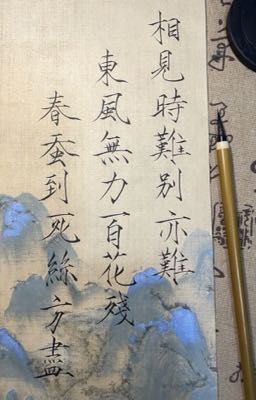 相見時難别亦難
東風無力百花殘
春蚕到死絲方盡